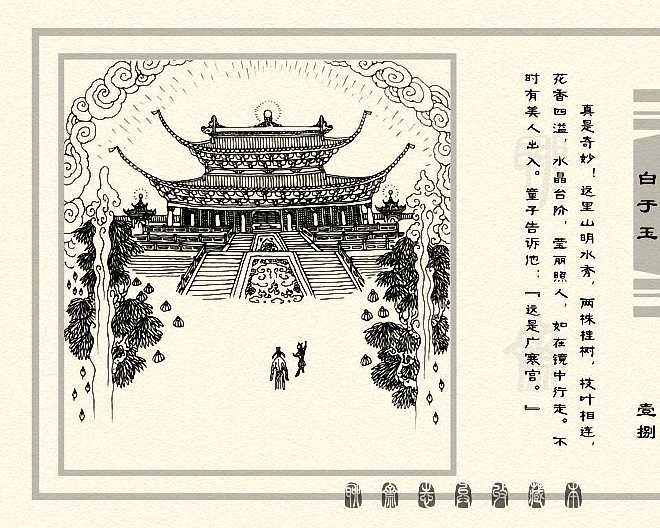 真是奇妙！这里山明水秀，两株桂树，枝叶相连，
花香四溢，水晶台阶，莹丽照人，如在镜中行走。不
时有美人出入。童子告诉他：「这是广寒宫。」
白于玉
壹捌
聊斋志异收藏本